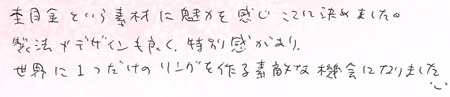 杢目金という素材に魅力を感じここに決めました。
製法やデザインも良く、特別感があり、
世界に1つだけのリングを作る素敵な機会になりました